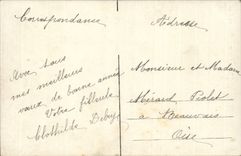 Correspondance
Adresse
Avec tous
mes meilleurs
vœux de bonne année
Votre filleule
Clothilde Deby
Monsieur et Madame
Mérard Piolet
à Beauvais
Oise